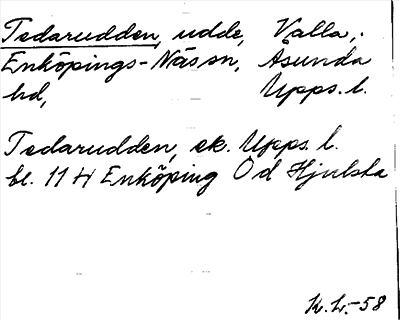 Tedarudden, udde, Valla,
Enköpings-Näs sn, Åsunda
hd, Upps. l.
Tedarudden, ek. Upps. l.
bl. 11 H Enköping Od Hjulsta
K. Li.-58